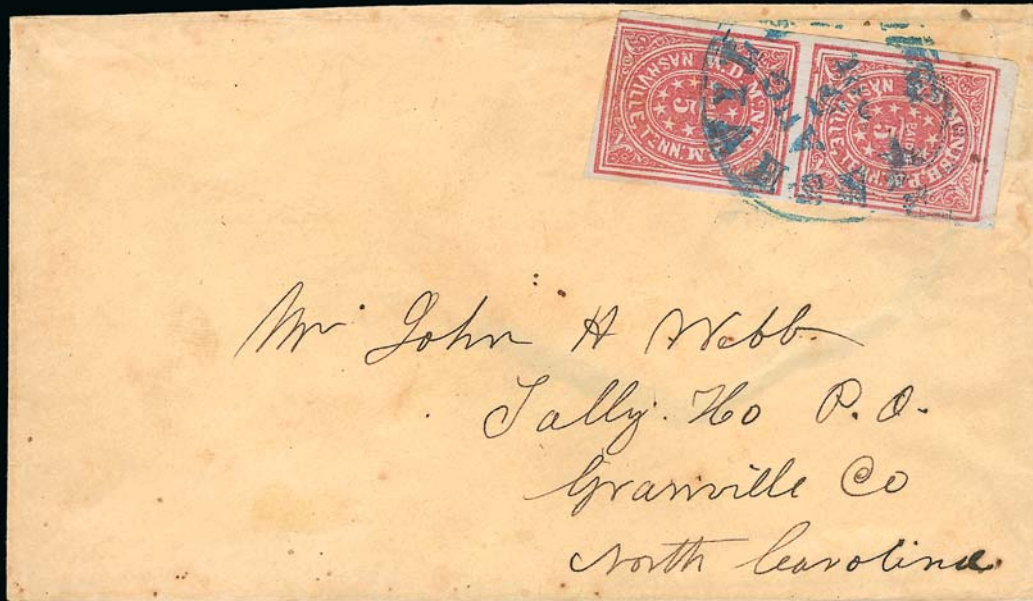 W.D. McNISH P.M. NASHVILLE TENN.
5
W.D. McNISH P.M. NASHVILLE TENN.
PAID
5
NASHVILLE
Mr John H Webb
Tally. Ho P. O.
Granville Co
North Carolina